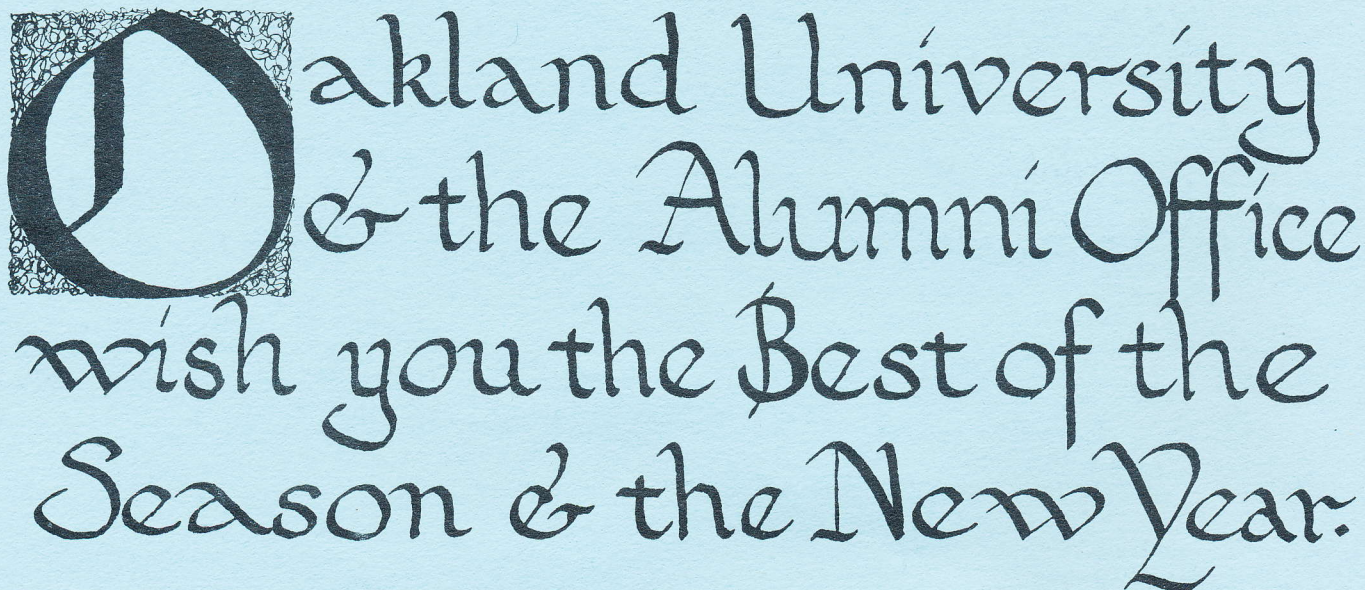 Oakland University
& the Alumni Office
wish you the Best of the
Season & the New Year.